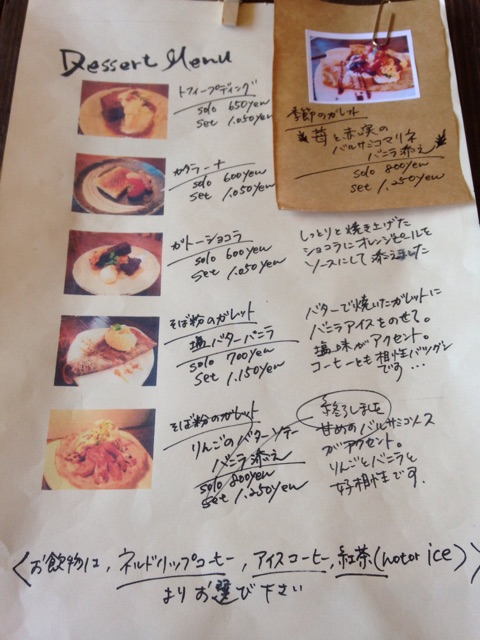 Dessert Menu
トフィープディング
solo 650yen
set 1.050yen
カタラーナ
solo 600yen
set 1.050yen
ガトーショコラ
solo 600yen
set 1.050yen
しっとりと焼き上げた
ショコラにオレンジピールを
ソースにして添えました
そば粉のガレット
塩バターバニラ
solo 700yen
set 1.150yen
バターで焼いたガレットに
バニラアイスをのせて。
塩味がアクセント。
コーヒーとも相性バツグン
です…
そば粉のガレット
りんごのバターソテー
バニラ添え
solo 800yen
set 1.250yen
終了しました
甘めのバルサミコソース
がアクセント。
りんごとバニラと
好相性です.
季節のガレット
苺と赤い実の
バルサミコマリネ
バニラ添え
solo 800yen
set 1.250yen
〈お飲物は, ネルドリップコーヒー, アイスコーヒー, 紅茶(hot or ice)〉
よりお選び下さい